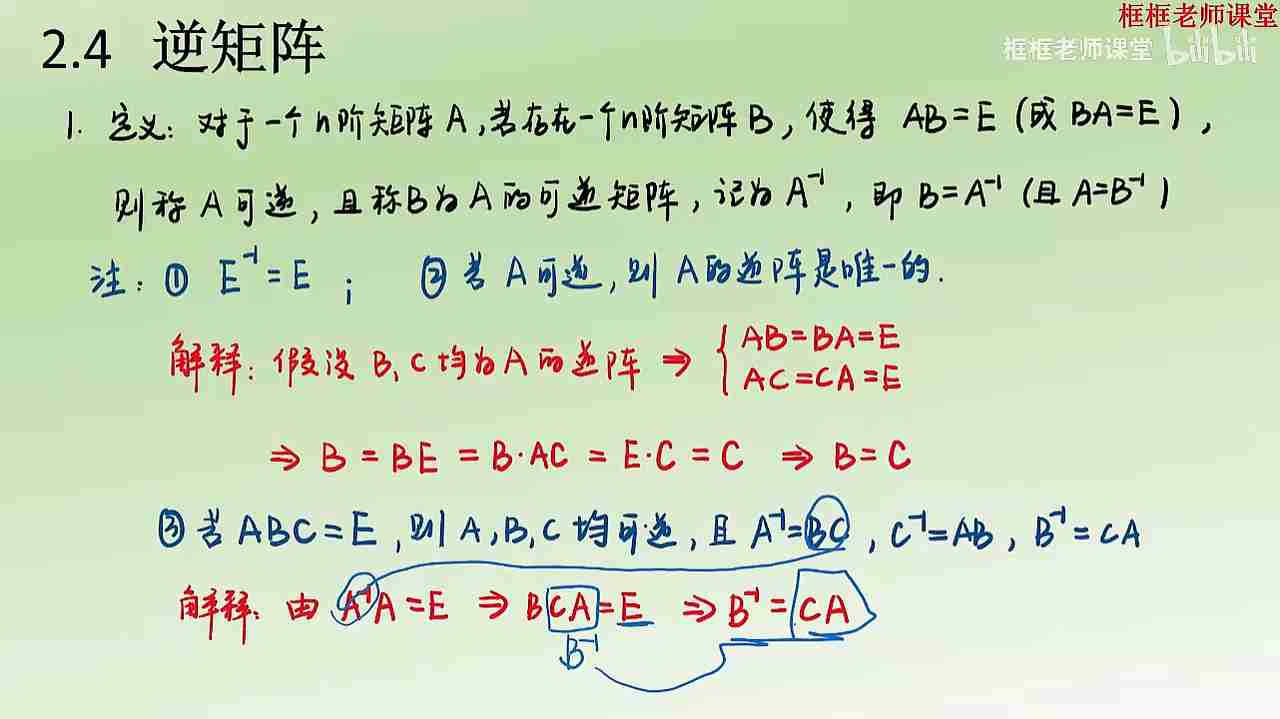 框框老师课堂
框框老师课堂 bilibili
2.4 逆矩阵
1. 定义: 对于一个n阶矩阵A,若存在一个n阶矩阵B,使得 AB=E (或BA=E),
则称A可逆,且称B为A的可逆矩阵,记为A⁻¹,即B=A⁻¹(且A=B⁻¹)
注: ① E⁻¹=E ; ② 若A可逆,则A的逆阵是唯一的.
解释: 假设B,C均为A的逆阵 ⇒ { AB=BA=E
AC=CA=E
⇒ B = BE = B·AC = E·C = C ⇒ B=C
③ 若ABC=E,则A,B,C均可逆,且A⁻¹=BC, C⁻¹=AB, B⁻¹=CA
解释: 由A⁻¹A=E ⇒ BCA=E ⇒ B⁻¹=CA
B⁻¹